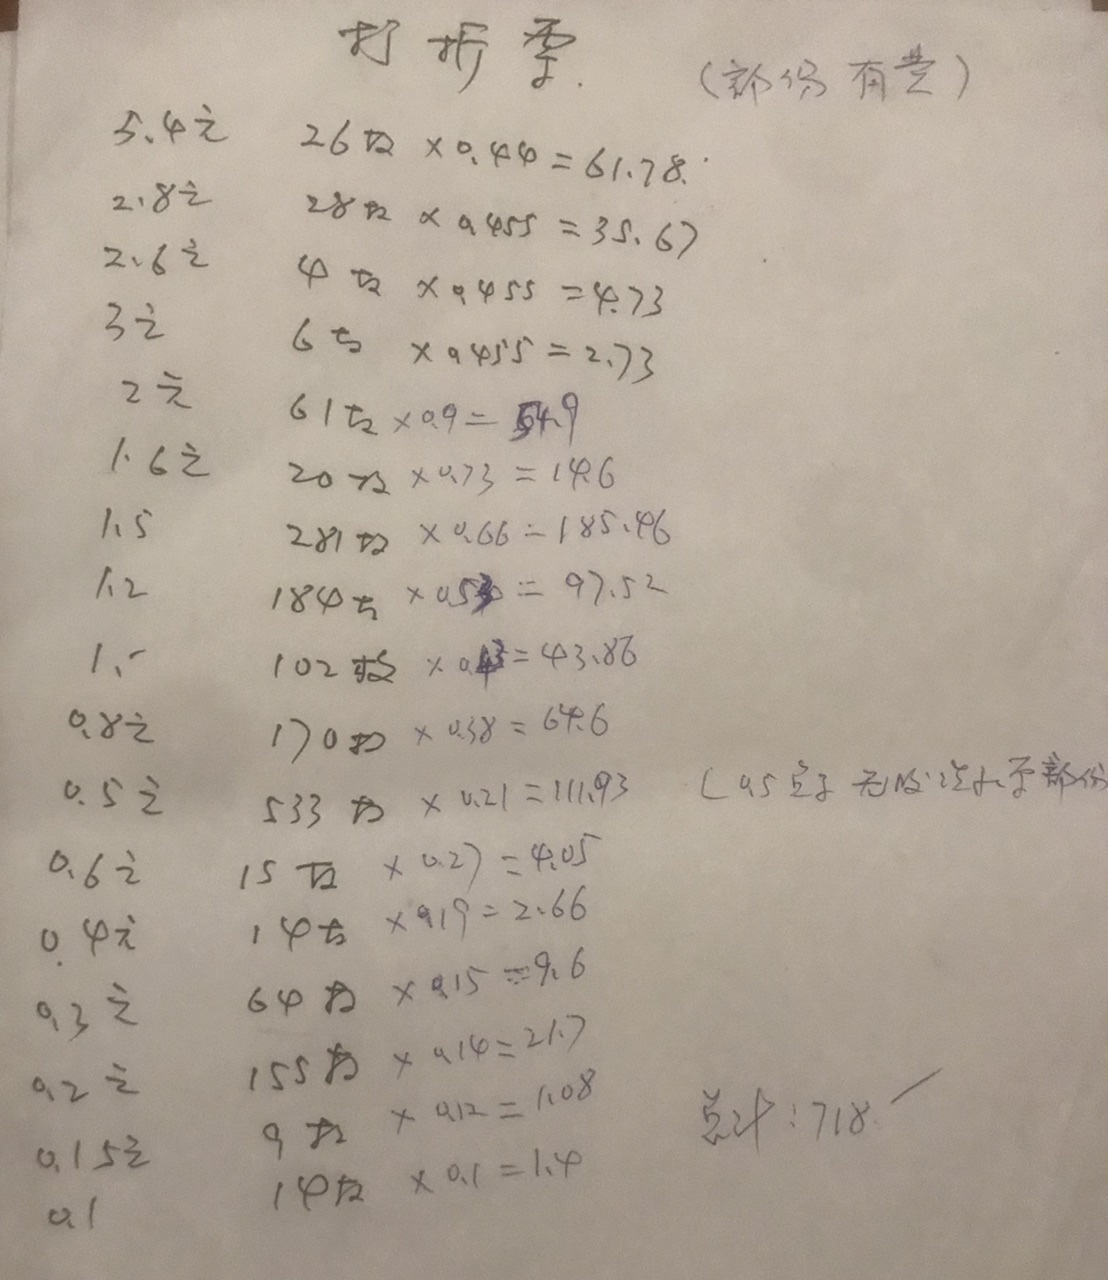 打折票 (部份有背)
5.4元 26枚 ×0.44=61.78.
2.8元 28枚 ×0.455=35.67
2.6元 4枚 ×0.455=4.73
3元 6枚 ×0.455=2.73
2元 61枚 ×0.9=54.9
1.6元 20枚 ×0.73=14.6
1.5 281枚 ×0.66=185.46
1.2 184枚 ×0.53=97.52
1.- 102枚 ×0.43=43.86
0.8元 170枚 ×0.38=64.6
0.5元 533枚 ×0.21=111.93 (0.5 无 部份
0.6元 15枚 ×0.27=4.05
0.4元 14枚 ×0.19=2.66
0.3元 64枚 ×0.15=9.6
0.2元 155枚 ×0.14=21.7
0.15元 9枚 ×0.12=1.08
0.1 14枚 ×0.1=1.4
总计:718